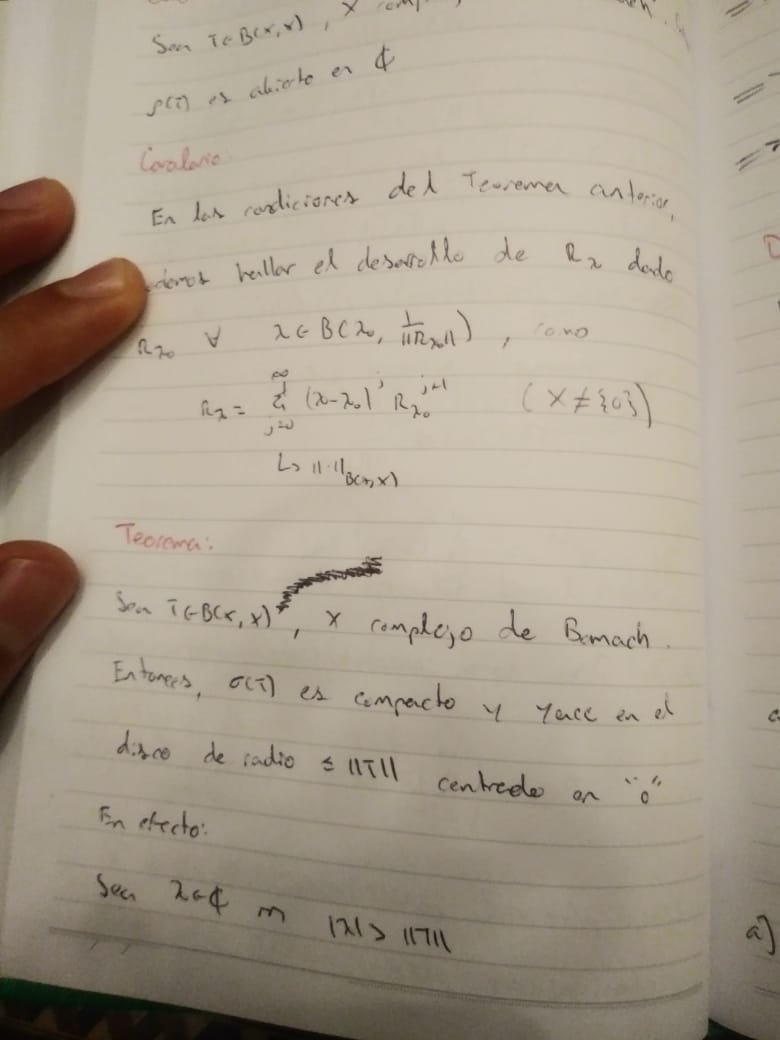 Sea T∈B(X,X), X comp
ρ(T) es abierto en ℂ
Corolario:
En las condiciones del Teorema anterior,
demos hallar el desarrollo de R_λ dado
R_λ₀ ∀ λ∈B(λ₀, 1/||R_λ₀||), como
R_λ = ∑_{j=0}^{∞} (λ-λ₀)^j R_λ₀^{j+1} (X≠{0})
↳ ||·||_B(X,X)
Teorema:
Sea T∈B(X,X), X complejo de Banach.
Entonces, σ(T) es compacto y yace en el
disco de radio ≤ ||T|| centrado en "0"
En efecto:
Sea λ∈ℂ m |λ| > ||T||
a)